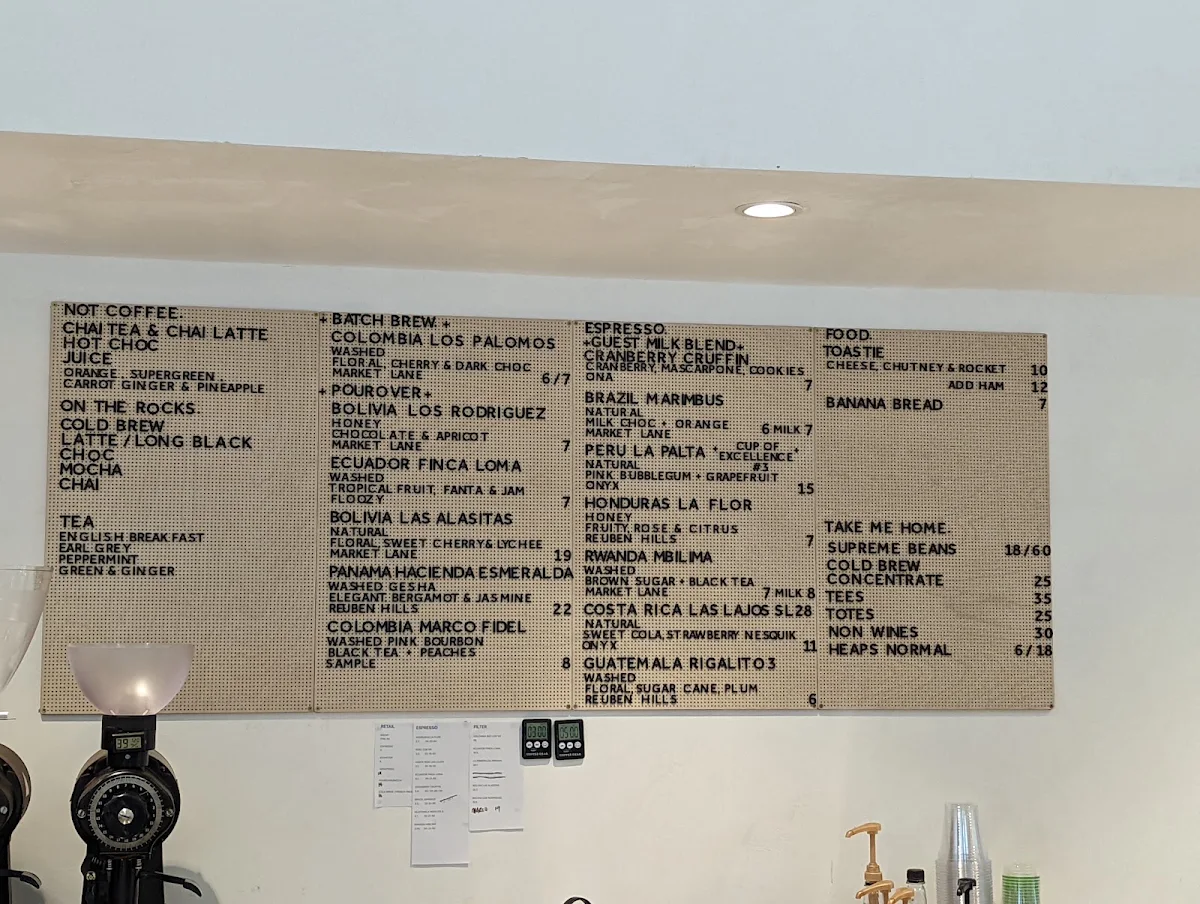 NOT COFFEE.
CHAI TEA & CHAI LATTE
HOT CHOC
JUICE
ORANGE . SUPERGREEN
CARROT GINGER & PINEAPPLE
ON THE ROCKS.
COLD BREW
LATTE / LONG BLACK
CHOC
MOCHA
CHAI
TEA
ENGLISH BREAKFAST
EARL GREY
PEPPERMINT
GREEN & GINGER
+ BATCH BREW. +
COLOMBIA LOS PALOMOS
WASHED
FLORAL, CHERRY & DARK CHOC
MARKET LANE 6/7
+ POUROVER +
BOLIVIA LOS RODRIGUEZ
HONEY
CHOCOLATE & APRICOT
MARKET LANE 7
ECUADOR FINCA LOMA
WASHED
TROPICAL FRUIT, FANTA & JAM
FLOOZY 7
BOLIVIA LAS ALASITAS
NATURAL
FLORAL SWEET CHERRY & LYCHEE
MARKET LANE 19
PANAMA HACIENDA ESMERALDA
WASHED GESHA
ELEGANT BERGAMOT & JASMINE
REUBEN HILLS 22
COLOMBIA MARCO FIDEL
WASHED PINK BOURBON
BLACK TEA + PEACHES
SAMPLE 8
ESPRESSO.
+GUEST MILK BLEND+
CRANBERRY CRUFFIN
CRANBERRY, MASCARPONE, COOKIES
ONA 7
BRAZIL MARIMBUS
NATURAL
MILK CHOC + ORANGE
MARKET LANE 6 MILK 7
PERU LA PALTA *CUP OF EXCELLENCE*
NATURAL #3
PINK BUBBLEGUM + GRAPEFRUIT
ONYX 15
HONDURAS LA FLOR
HONEY
FRUITY, ROSE & CITRUS
REUBEN HILLS 7
RWANDA MBILIMA
WASHED
BROWN SUGAR + BLACK TEA
MARKET LANE 7 MILK 8
COSTA RICA LAS LAJOS SL28
NATURAL
SWEET COLA, STRAWBERRY NESQUIK
ONYX 11
GUATEMALA RIGALITO 3
WASHED
FLORAL, SUGAR CANE, PLUM
REUBEN HILLS 6
FOOD.
TOASTIE
CHEESE, CHUTNEY & ROCKET 10
ADD HAM 12
BANANA BREAD 7
TAKE ME HOME.
SUPREME BEANS 18/60
COLD BREW
CONCENTRATE 25
TEES 35
TOTES 25
NON WINES 30
HEAPS NORMAL 6/18
RETAIL
ESPRESSO
FILTER
03:00
05:00
39